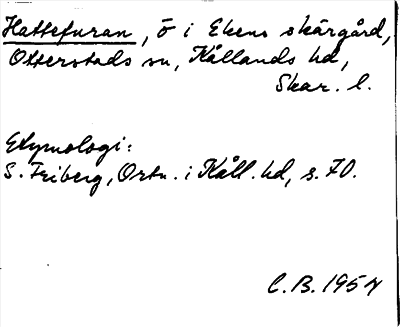 Hattefuran, ö i Ekens skärgård,
Otterstads sn, Kållands hd,
Skar. l.
Etymologi:
S. Friberg, Ortn. i Kåll. hd, s. 70.
C.B. 1957